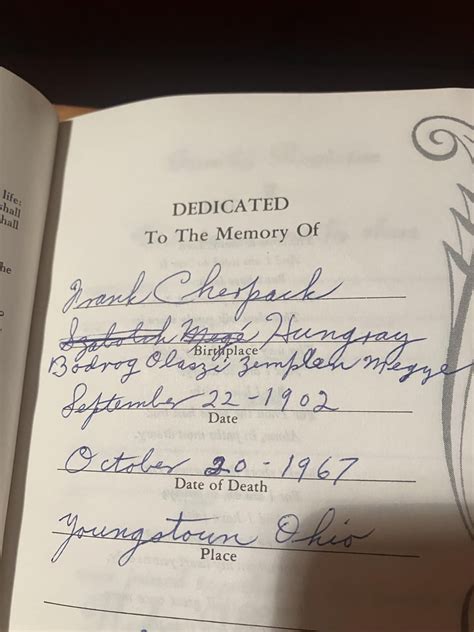 life:
shall
hall
he
DEDICATED
To The Memory Of
Frank Cherpack
Szabolch Megé Hungray
Birthplace
Bodrog Olaszi Zemplen Megye
September 22-1902
Date
October 20-1967
Date of Death
Youngstown Ohio
Place